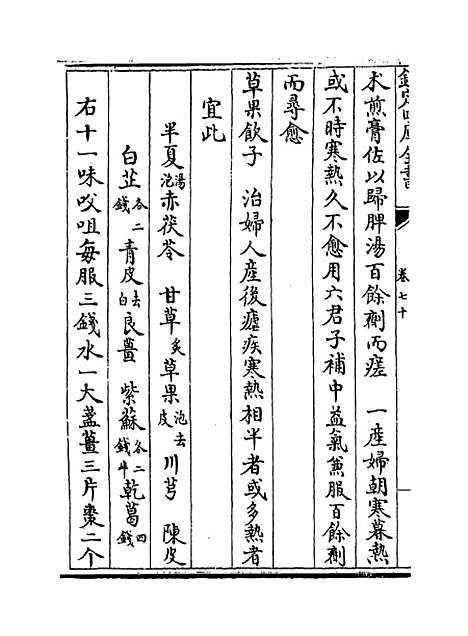 欽定四庫全書
卷七十
术煎膏佐以歸脾湯百餘劑而瘥　一産婦朝寒暮熱
或不時寒熱久不愈用六君子補中益氣兼服百餘劑
而尋愈
草果飲子　治婦人産後瘧疾寒熱相半者或多熱者
宜此
半夏湯泡　赤茯苓　甘草炙　草果泡去皮　川芎　陳皮
白芷各二錢　青皮去白　良薑　紫蘇各二錢半　乾葛四錢
右十一味㕮咀每服三錢水一大盞薑三片棗二个